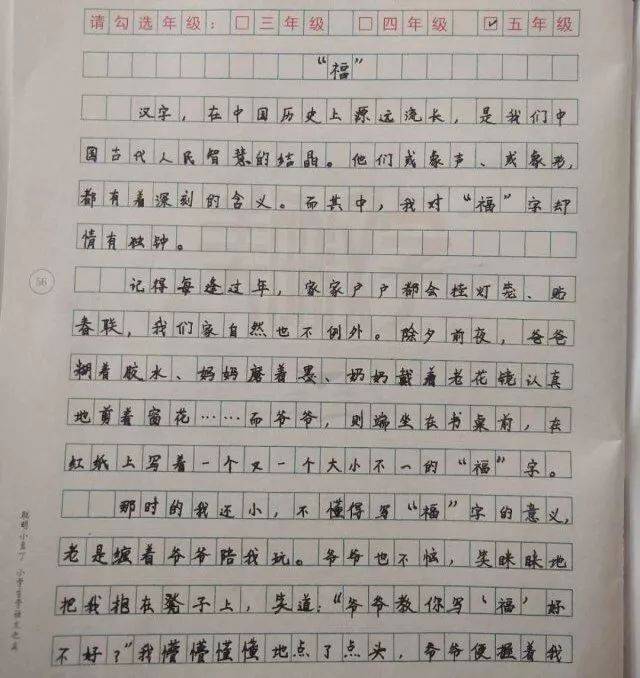 请勾选年级：□三年级 □四年级 ☑五年级
“福”
汉字，在中国历史上源远流长，是我们中
国古代人民智慧的结晶。他们或象声、或象形，
都有着深刻的含义。而其中，我对“福”字却
情有独钟。
56
记得每逢过年，家家户户都会挂灯笼、贴
春联，我们家自然也不例外。除夕前夜，爸爸
糊着胶水、妈妈磨着墨、奶奶戴着老花镜认真
地剪着窗花……而爷爷，则端坐在书桌前，在
红纸上写着一个又一个大小不一的“福”字。
那时的我还小，不懂得写“福”字的意义，
老是缠着爷爷陪我玩。爷爷也不恼，笑眯眯地
把我抱在凳子上，笑道：“爷爷教你写‘福’好
不好？”我懵懵懂懂地点了点头，爷爷便握着我
聪明小豆丁 小学生学语文之友